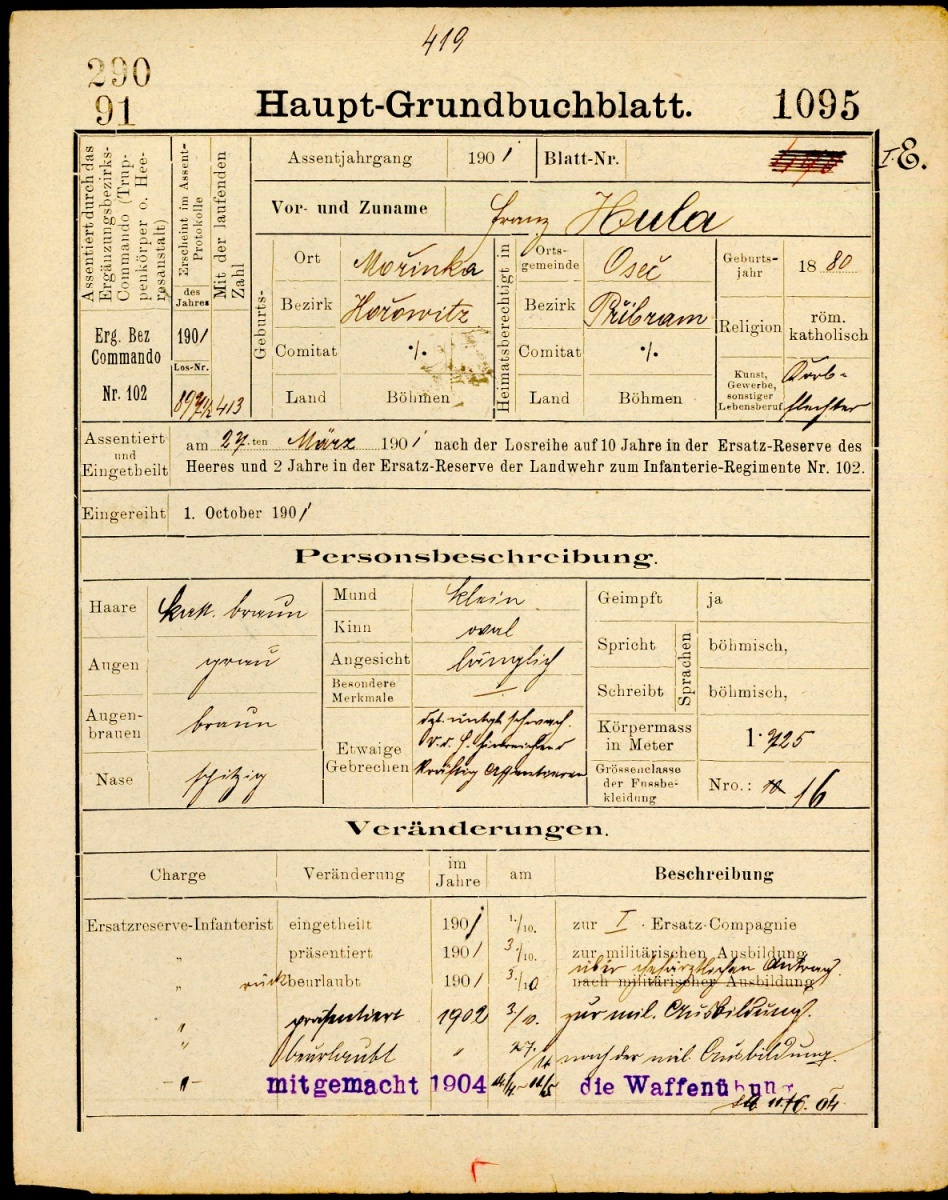 419
290
91
Haupt-Grundbuchblatt.
1095
Assentiert durch das Ergänzungsbezirks-Commando (Truppenkörper o. Heeresanstalt)
Erscheint im Assent-Protokolle
des Jahres
Mit der laufenden Zahl
Assentjahrgang 1901 Blatt-Nr.
I. E.
Vor- und Zuname Franz Hula
Geburts-
Ort Mořinka
Bezirk Hořowitz
Comitat ·/.
Land Böhmen
Heimatsberechtigt in
Ortsgemeinde Oseč
Bezirk Přibram
Comitat ·/.
Land Böhmen
Geburtsjahr 1880
Religion röm. katholisch
Kunst, Gewerbe, sonstiger Lebensberuf Korb-
flechter
Erg. Bez
Commando
Nr. 102
1901
Los-Nr.
413
Assentiert und Eingetheilt
am 27.ten März 1901 nach der Losreihe auf 10 Jahre in der Ersatz-Reserve des
Heeres und 2 Jahre in der Ersatz-Reserve der Landwehr zum Infanterie-Regimente Nr. 102.
Eingereiht 1. October 1901
Personsbeschreibung.
Haare braun
Augen grau
Augen-
brauen braun
Nase spitzig
Mund klein
Kinn oval
Angesicht länglich
Besondere
Merkmale —
Etwaige
Gebrechen
Geimpft ja
Sprachen
Spricht böhmisch,
Schreibt böhmisch,
Körpermass
in Meter 1·725
Grössenclasse
der Fussbe-
kleidung Nro.: 16
Veränderungen.
Charge Veränderung im Jahre am Beschreibung
Ersatzreserve-Infanterist eingetheilt 1901 1./10. zur I. Ersatz-Compagnie
„ präsentiert 1901 3./10. zur militärischen Ausbildung
über Antrag.
„ rückbeurlaubt 1901 3./10 nach militärischer Ausbildung
„ präsentiert 1902 3./10. zur mil. Ausbildung.
„ beurlaubt „ 27. nach der mil. Ausbildung.
-"- mitgemacht 1904 die Waffenübung